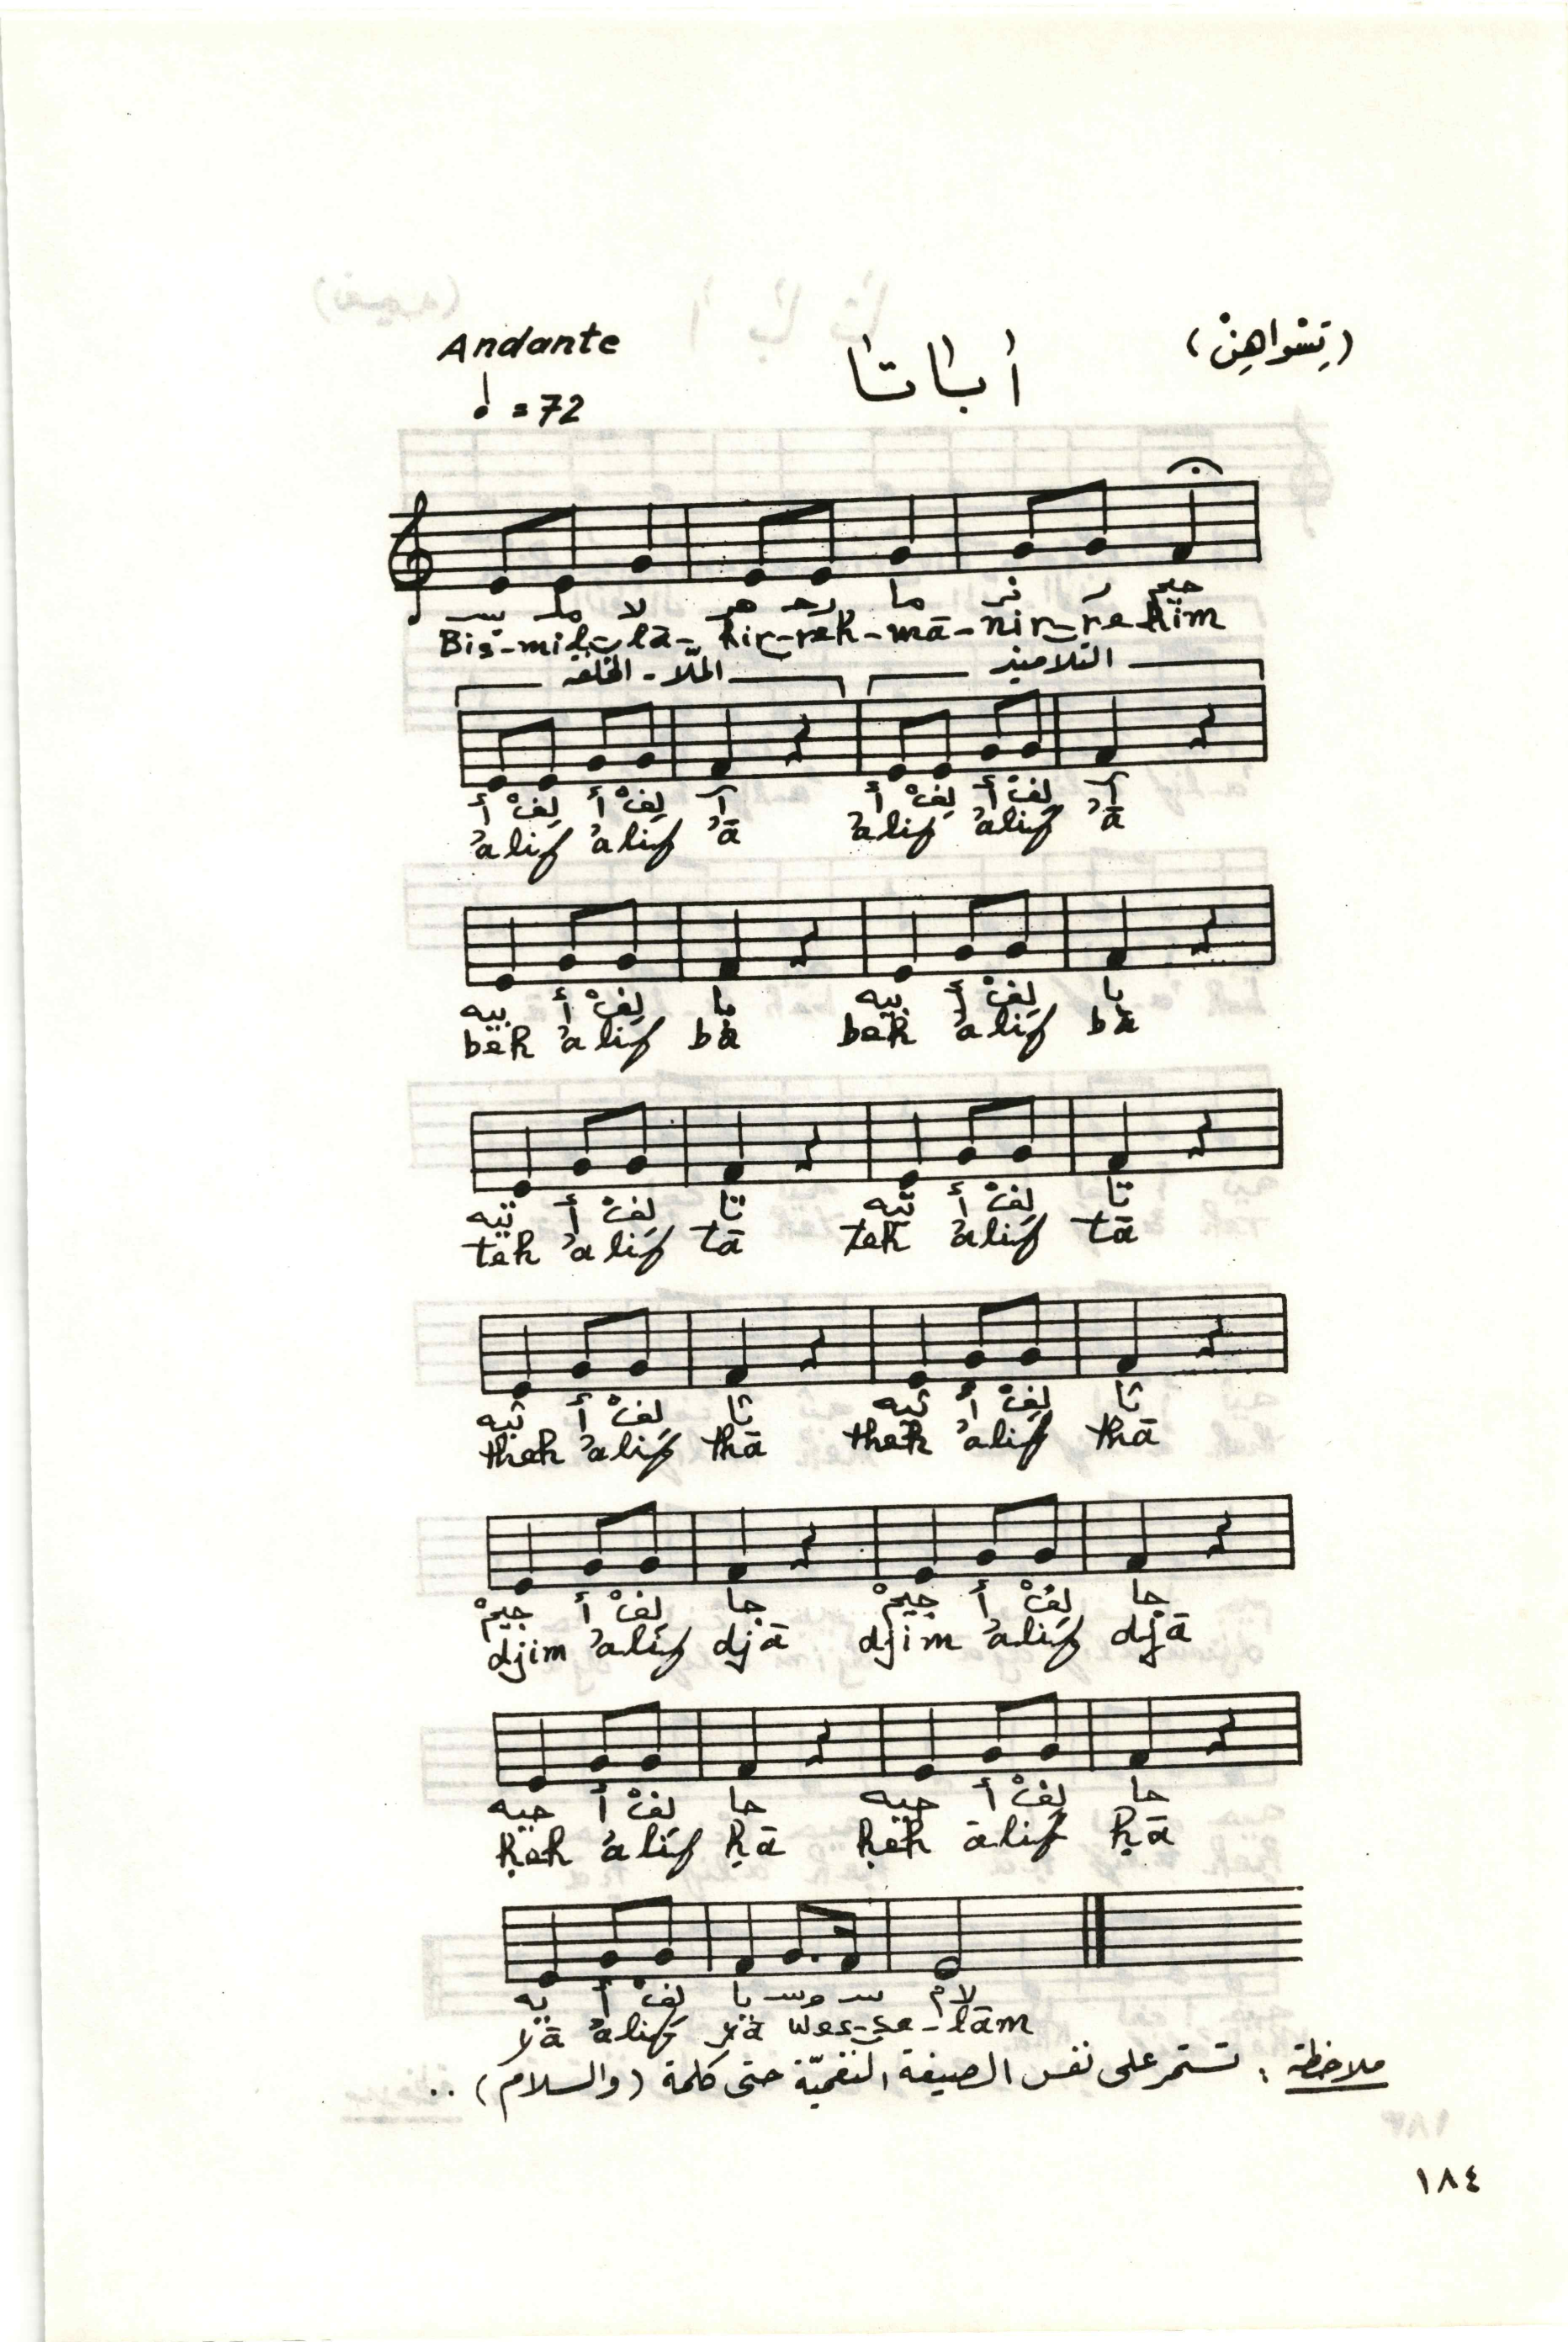 Andante
أ بٰا تٰا
(تِسْواهِنْ)
♩ = 72
بسـ ملـ لا هر رحـ ما نر ر حيم
Bis-mil-lā-hir-reh-mā-nir-re-him
المُلّا - الخلفه التلاميذ
أ لِفْ أ لِفْ آ أ لِفْ أ لِفْ آ
'alif 'alif 'ā 'alif 'alif 'ā
بيه أ لِفْ با بيه أ لِفْ با
beh 'alif bā beh 'alif bā
تيه أ لِفْ تا تيه أ لِفْ تا
teh 'alif tā teh 'alif tā
ثيه أ لِفْ ثا ثيه أ لِفْ ثا
theh 'alif thā theh 'alif thā
جيمْ أ لِفْ جا جيمْ أ لِفْ جا
djim 'alif djā djim 'alif djā
حيه أ لِفْ حا حيه أ لِفْ حا
ḥeh 'alif ḥā ḥeh ālif ḥā
يه أ لِفْ يا وسـ سـ لام
yā 'alif yā wes-se-lām
ملاحظة : تستمر على نفس الصيغة النغميّة حتى كلمة (والسلام) ..
١٨٤